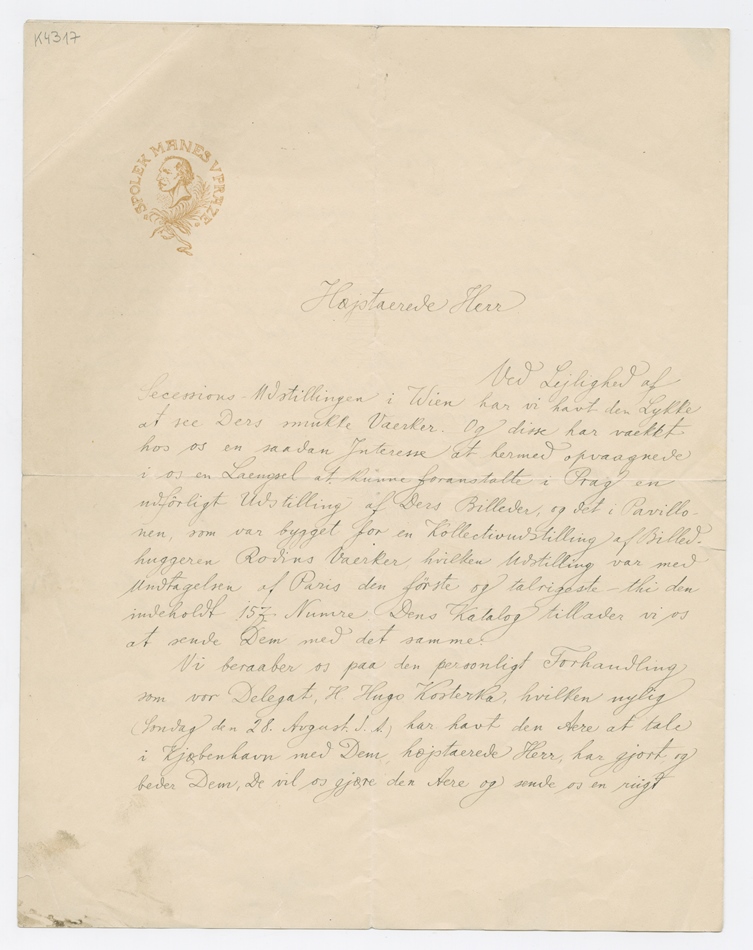 K4317
SPOLEK MANES V PRAZE
Højstaerede Herr
Ved Lejlighed af
Secessions-Udstillingen i Wien har vi havt den Lykke
at see Ders smukke Vaerker. Og disse har vaekket
hos os en saadan Interesse at hermed opvaagnede
i os en Laengsel at kunne foranstalte i Prag en
udförligt Udstilling af Ders Billeder, og det i Pavillo-
nen, som var bygget for en Kollectivudstilling af Billed-
huggeren Rodins Vaerker, hvilken Udstilling var med
Undtagelsen af Paris den förste og talrigeste - thi den
indeholdt 157 Numre. Dens Katalog tillader vi os
at sende Dem med det samme.
Vi beraaber os paa den personligt Forhandling
som vor Delegat, H Hugo Kosterka, hvilken nylig
(Söndag den 28. Avgust. d. A.) har havt den Aere at tale
i Kjøbenhavn med Dem, højstaerede Herr, har gjort og
beder Dem, De vil os gjøre den Aere og sende os en riigt